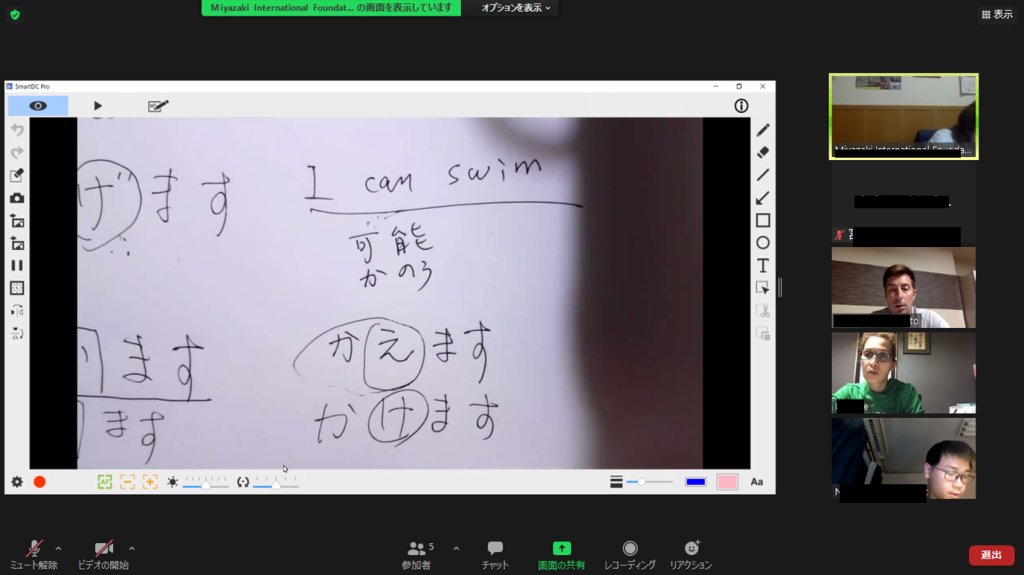 Miyazaki International Foundat... の画面を表示しています
オプションを表示
表示
SmartDC Pro
げます
I can swim
可能
かのう
かえます
ます
かけます
ます
Miyazaki International Founda...
to
e
N
T
Aa
ミュート解除
ビデオの開始
参加者
5
チャット
画面の共有
レコーディング
リアクション
退出